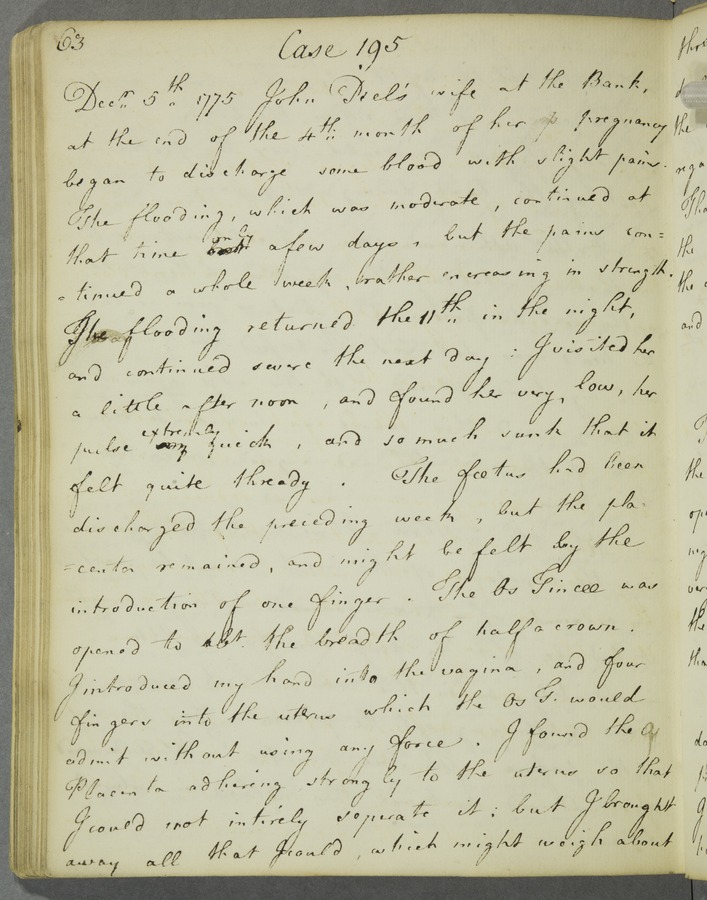 63
Case 195
Decr. 5th. 1775 John Peel's wife at the Bank,
at the end of the 4th: month of her pregnancy
began to discharge some blood with slight pains.
The flooding, which was moderate, continued at
that time only a few days, but the pains con=
=tinued a whole week, rather encreasing in strength.
The flooding returned the 11th.. in the night,
and continued severe the next day: I visited her
a little after noon, and found her very low, her
pulse extremely quick, and so much sunk that it
felt quite thready. The fœtus had been
discharged the preceding week, but the pla-
=centa remained, and might be felt by the
introduction of one finger. The Os Tincæ was
opened to abt. the breadth of half a crown.
I introduced my hand into the vagina, and four
fingers into the uterus which the Os T. would
admit without using any force. I found the
Placenta adhering strongly to the uterus so that
I could not intirely seperate it; but I brought
away all that I could, which might weigh about